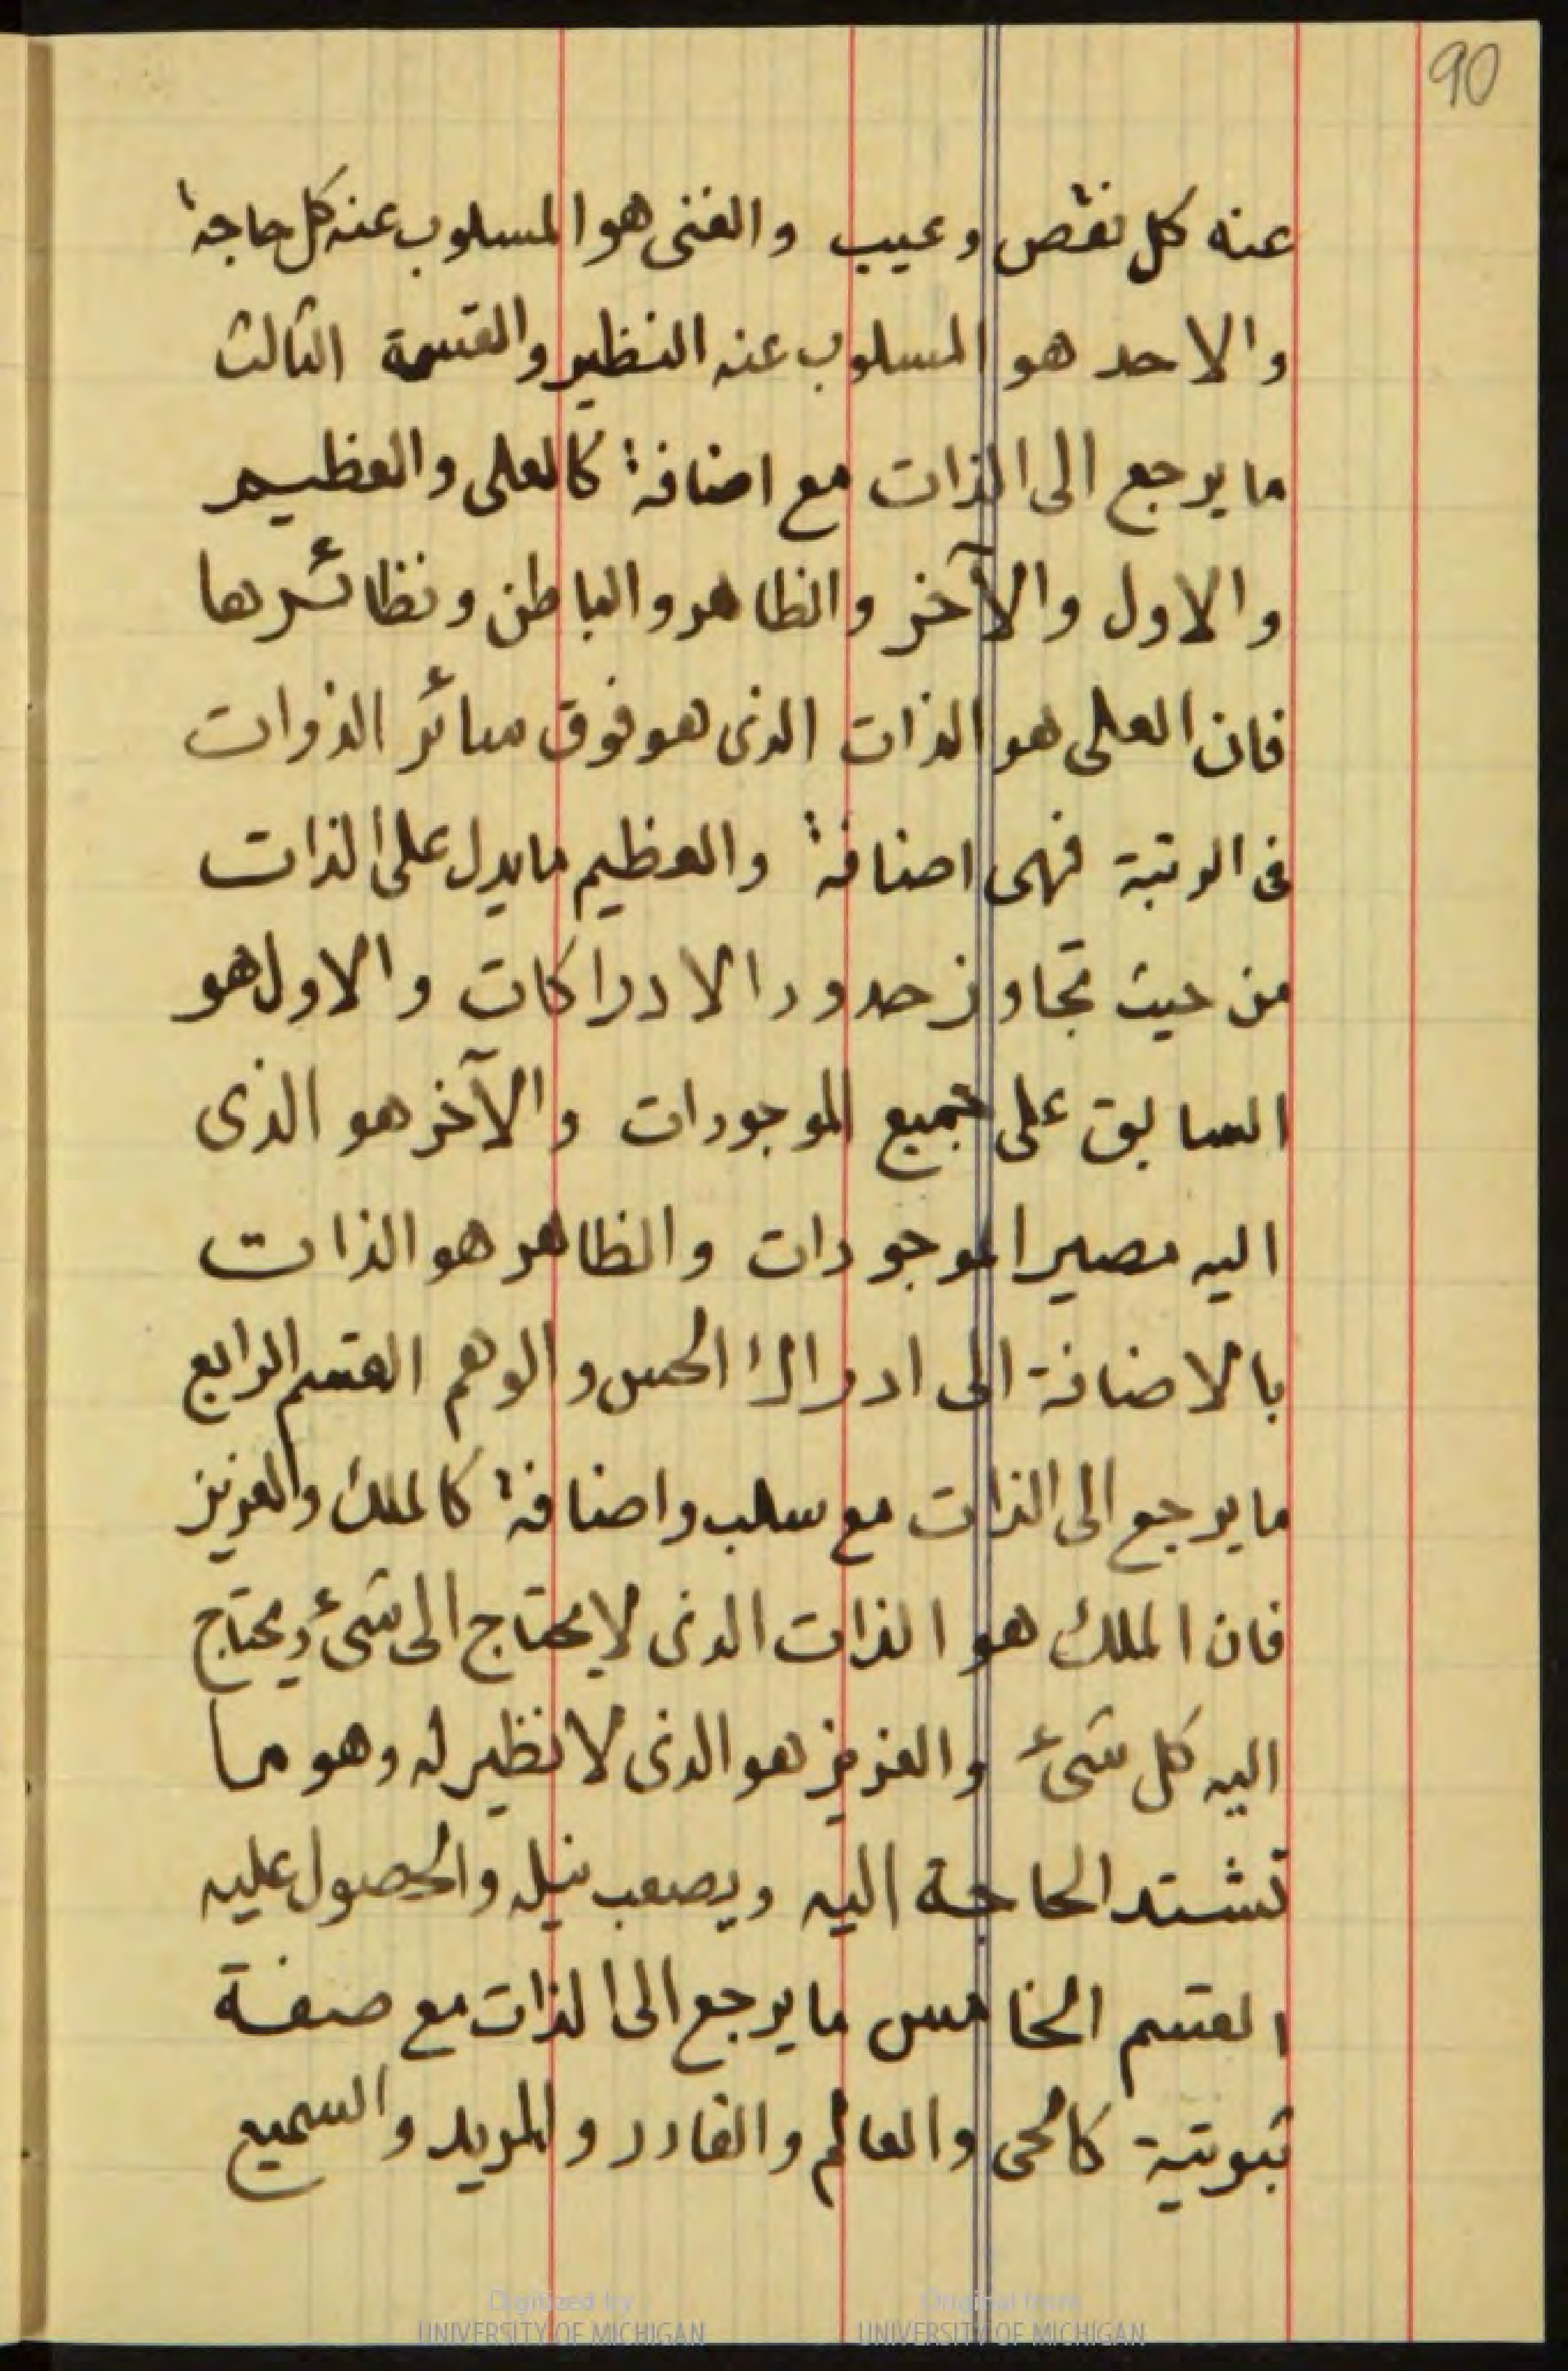 90
عنه كل نقص وعيب والغنى هو المسلوب عنه كل حاجة
والاحد هو المسلوب عنه النظير والقسمة الثالث
ما يرجع الى الذات مع اضافة كالعلى والعظيم
والاول والآخر والظاهر والباطن ونظائرها
فان العلى هو الذات الذى هو فوق سائر الذوات
فى الرتبة فهى اضافة والعظيم ما يدل على الذات
من حيث تجاوز حدود الادراكات والاول هو
السابق على جميع الموجودات والآخر هو الذى
اليه مصير الموجودات والظاهر هو الذات
بالاضافة الى ادراك الحس والوهم القسم الرابع
ما يرجع الى الذات مع سلب واضافة كالملك والعزيز
فان الملك هو الذات الذى لا يحتاج الى شىء ويحتاج
اليه كل شىء والعزيز هو الذى لا نظير له وهو مما
تشتد الحاجة اليه ويصعب نيله والحصول عليه
القسم الخامس ما يرجع الى الذات مع صفة
ثبوتية كالحى والعالم والقادر والمريد والسميع
Digitized by UNIVERSITY OF MICHIGAN
Original from UNIVERSITY OF MICHIGAN